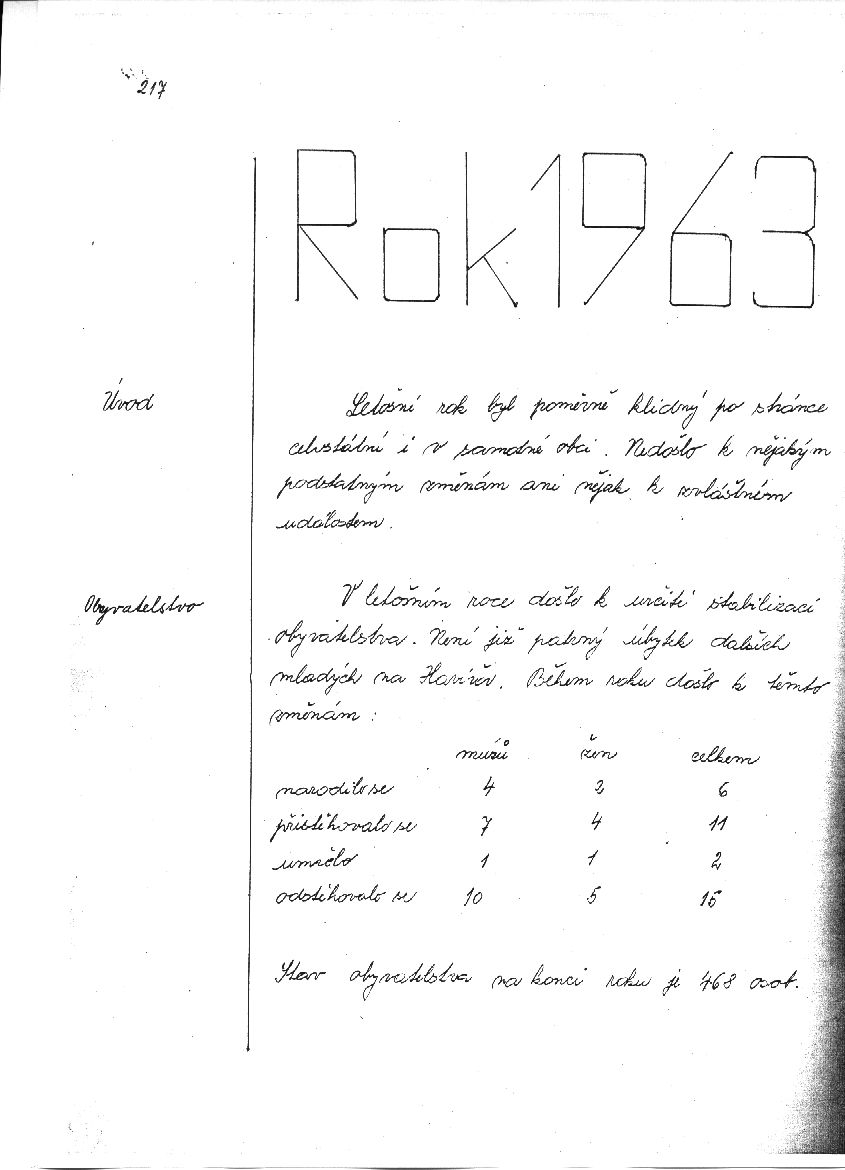 217
Rok 1963
Úvod
Letošní rok byl poměrně klidný po stránce
celostátní i v samotné obci. Nedošlo k nějakým
podstatným změnám ani nějak k zvláštním
událostem.
Obyvatelstvo
V letošním roce došlo k určité stabilizaci
obyvatelstva. Není již patrný úbytek dalších
mladých na Havířov. Během roku došlo k těmto
změnám :
mužů žen celkem
narodilo se 4 2 6
přistěhovalo se 7 4 11
umřelo 1 1 2
odstěhovalo se 10 5 15
Stav obyvatelstva na konci roku je 468 osob.